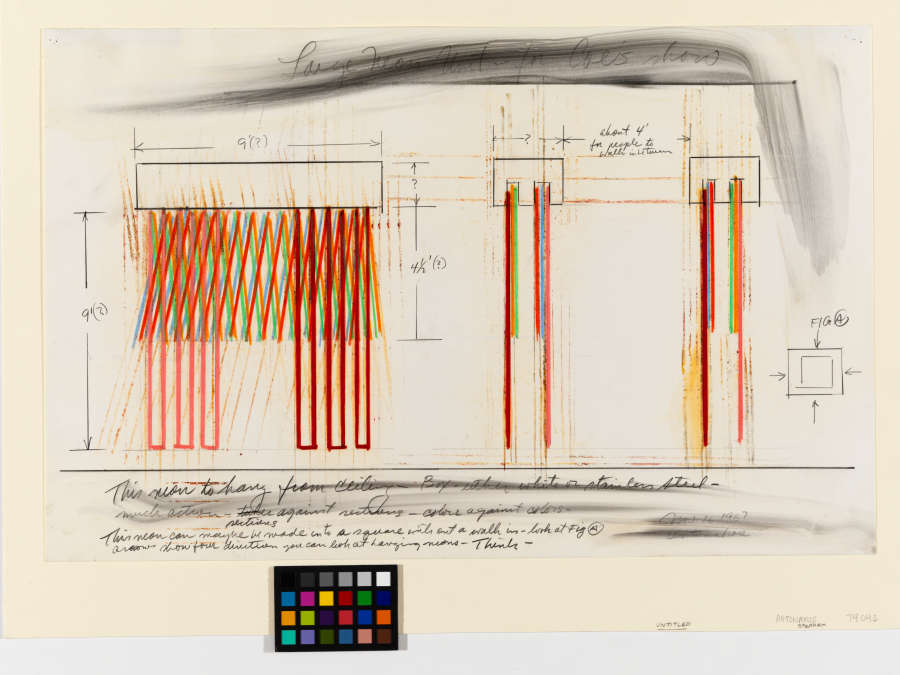 Large Neon Unit - for show
9'(?)
?
about 4'
for people to
walk in between
?
4½'(?)
9'(?)
FIG A
This neon to hang from ceiling - Box either white or stainless steel -
much action - against sections - colors against colors -
sections
This neon can maybe be made into a square without a walk in - look at Fig A
arrows show four direction you can look at hanging neons - Think -
1967
UNTITLED
ANTONAKOS
STEPHEN